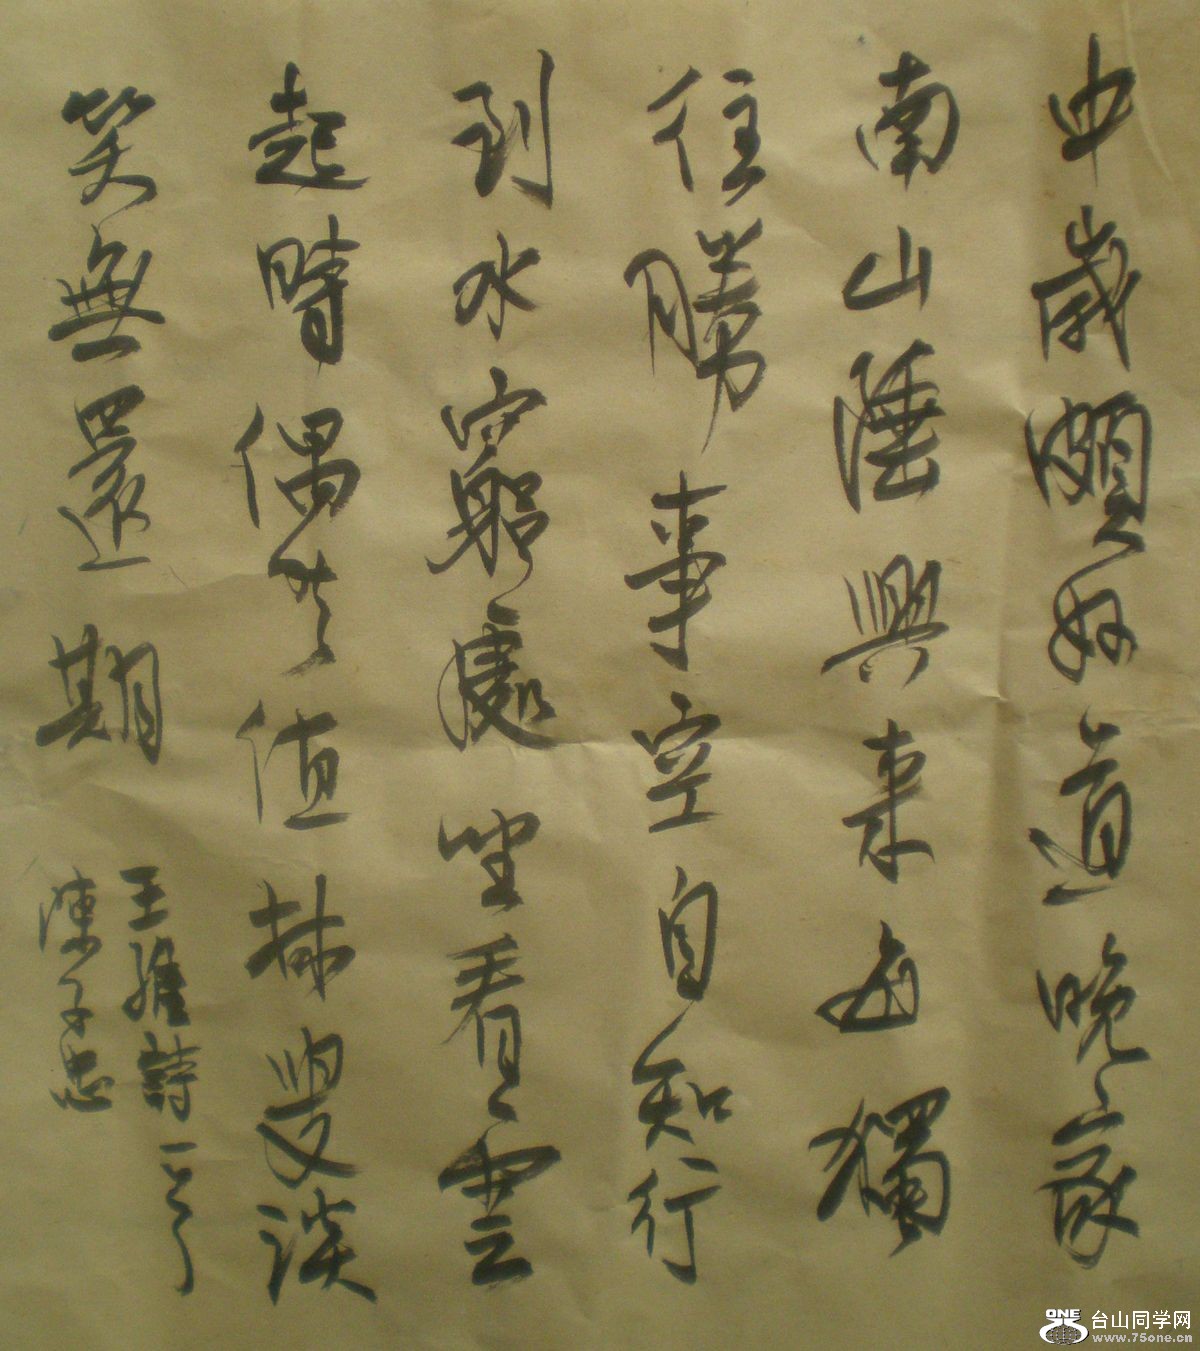 中歲頗好道晚家
南山陲興來每獨
往勝事空自知行
到水窮處坐看雲
起時偶然值林叟談
笑無還期
王維詩一首
陳子忠
ONE
台山同学网
www.75one.cn